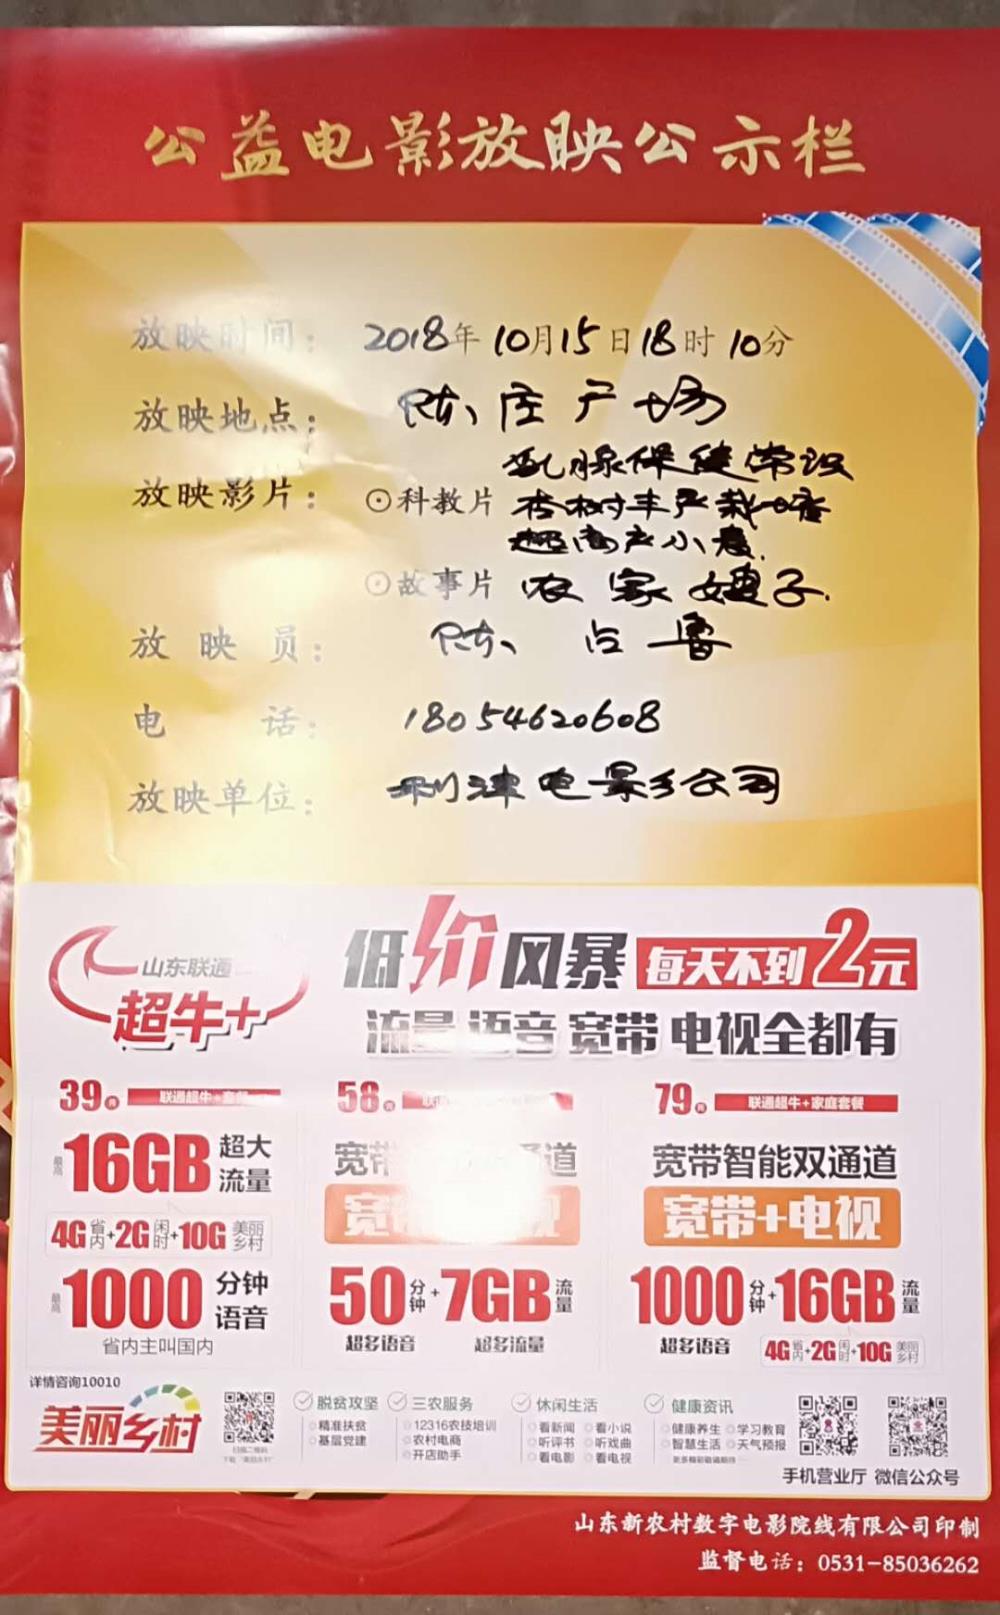 公益电影放映公示栏
放映时间： 2018年10月15日18时10分
放映地点： 陈庄广场
乳腺保健常识
放映影片： ⊙科教片 杏树丰产栽培
超高产小麦.
⊙故事片 农家嫂子.
放映员： 陈占鲁
电话： 18054620608
放映单位： 利津电影公司
山东联通 低价风暴 每天不到2元
超牛+ 流量 语音 宽带 电视全都有
39元 联通超牛+套餐 58元 79元 联通超牛+家庭套餐
最高16GB超大流量 宽带 双通道 宽带智能双通道
4G省内+2G闲时+10G美丽乡村 宽带+电视
最高1000分钟语音 50分钟+7GB流量 1000分钟+16GB流量
省内主叫国内 超多语音 超多流量 超多语音 4G省内+2G闲时+10G美丽乡村
详情咨询10010
美丽乡村 脱贫攻坚 三农服务 休闲生活 健康资讯
精准扶贫 12316农技培训 看新闻 看小说 健康养生 学习教育
基层党建 农村电商 听评书 听戏曲 智慧生活 天气预报
开店助手 看电影 看电视
手机营业厅 微信公众号
山东新农村数字电影院线有限公司印制
监督电话：0531-85036262